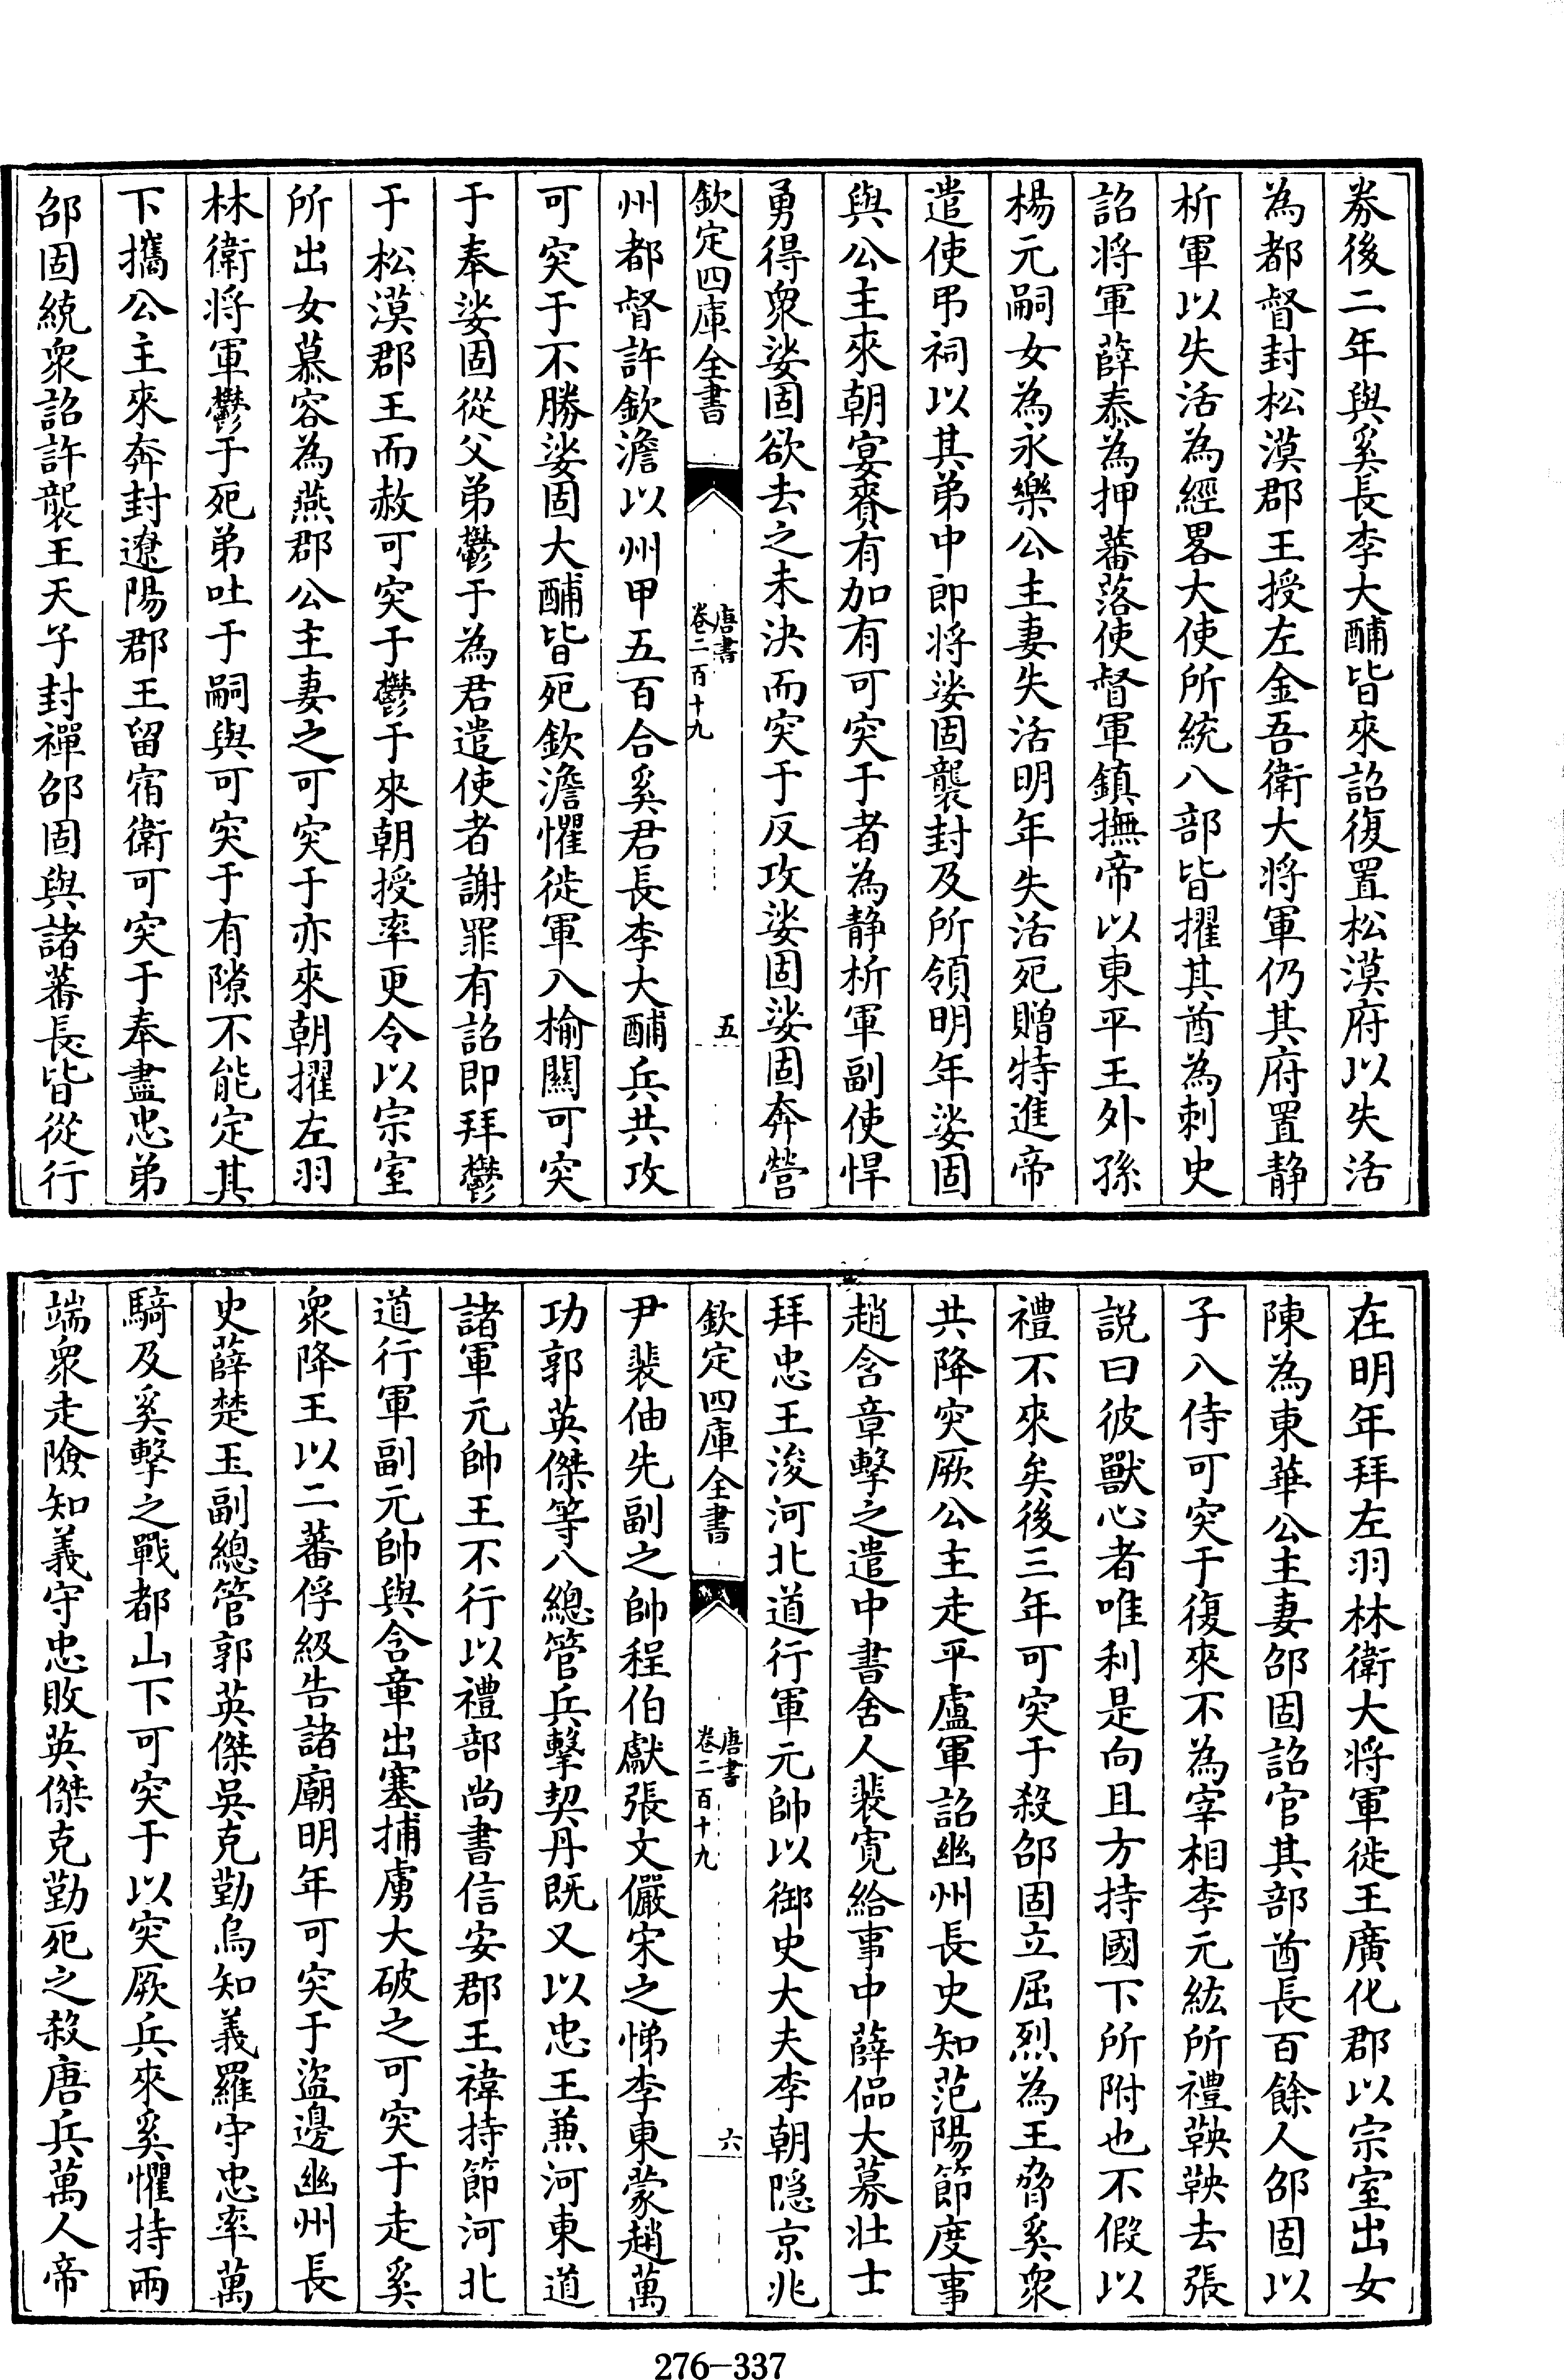 券後二年與奚長李大酺皆來詔復置松漠府以失活
為都督封松漠郡王授左金吾衛大将軍仍其府置静
析軍以失活為經畧大使所統八部皆擢其酋為刺史
詔将軍薛泰為押蕃落使督軍鎮撫帝以東平王外孫
楊元嗣女為永樂公主妻失活明年失活死贈特進帝
遣使弔祠以其弟中郎将娑固襲封及所領明年娑固
與公主來朝宴賚有加有可突于者為静析軍副使悍
勇得衆娑固欲去之未決而突于反攻娑固娑固奔營
欽定四庫全書
唐書
卷二百十九
五
州都督許欽澹以州甲五百合奚君長李大酺兵共攻
可突于不勝娑固大酺皆死欽澹懼徙軍入榆關可突
于奉娑固從父弟鬱于為君遣使者謝罪有詔即拜鬱
于松漠郡王而赦可突于鬱于來朝授率更令以宗室
所出女慕容為燕郡公主妻之可突于亦來朝擢左羽
林衛将軍鬱于死弟吐于嗣與可突于有隙不能定其
下攜公主來奔封遼陽郡王留宿衛可突于奉盡忠弟
邵固統衆詔許襲王天子封禪邵固與諸蕃長皆從行
在明年拜左羽林衛大将軍徙王廣化郡以宗室出女
陳為東華公主妻邵固詔官其部酋長百餘人邵固以
子入侍可突于復來不為宰相李元紘所禮鞅鞅去張
説曰彼獸心者唯利是向且方持國下所附也不假以
禮不來矣後三年可突于殺邵固立屈烈為王脅奚衆
共降突厥公主走平盧軍詔幽州長史知范陽節度事
趙含章擊之遣中書舍人裴寛給事中薛偘大募壯士
拜忠王浚河北道行軍元帥以御史大夫李朝隱京兆
欽定四庫全書
唐書
卷二百十九
六
尹裴伷先副之帥程伯獻張文儼宋之悌李東蒙趙萬
功郭英傑等八總管兵擊契丹既又以忠王兼河東道
諸軍元帥王不行以禮部尚書信安郡王禕持節河北
道行軍副元帥與含章出塞捕虜大破之可突于走奚
衆降王以二蕃俘級告諸廟明年可突于盜邊幽州長
史薛楚玉副總管郭英傑吳克勤烏知義羅守忠率萬
騎及奚擊之戰都山下可突于以突厥兵來奚懼持兩
端衆走險知義守忠敗英傑克勤死之殺唐兵萬人帝
276-337